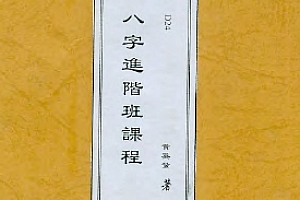 D24
八字進階班課程
著